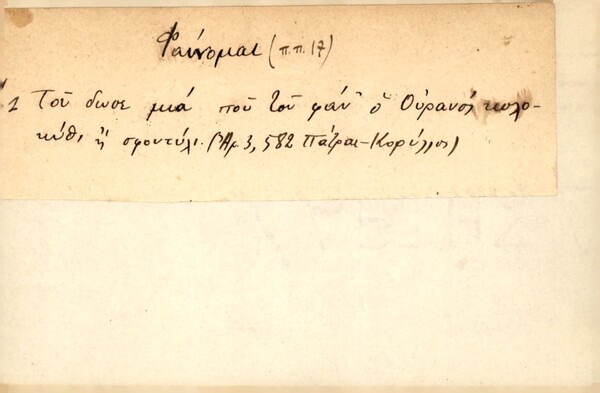 Φαίνομαι (π.π. 17)
1 Τοῦ δωσε μιά ποῦ τοῦ φάν' ὁ Οὐρανός κολο-
κύθι ἤ σφοντύλι. (Ἀρ 3, 582 Πάτραι-Κορύλλος)